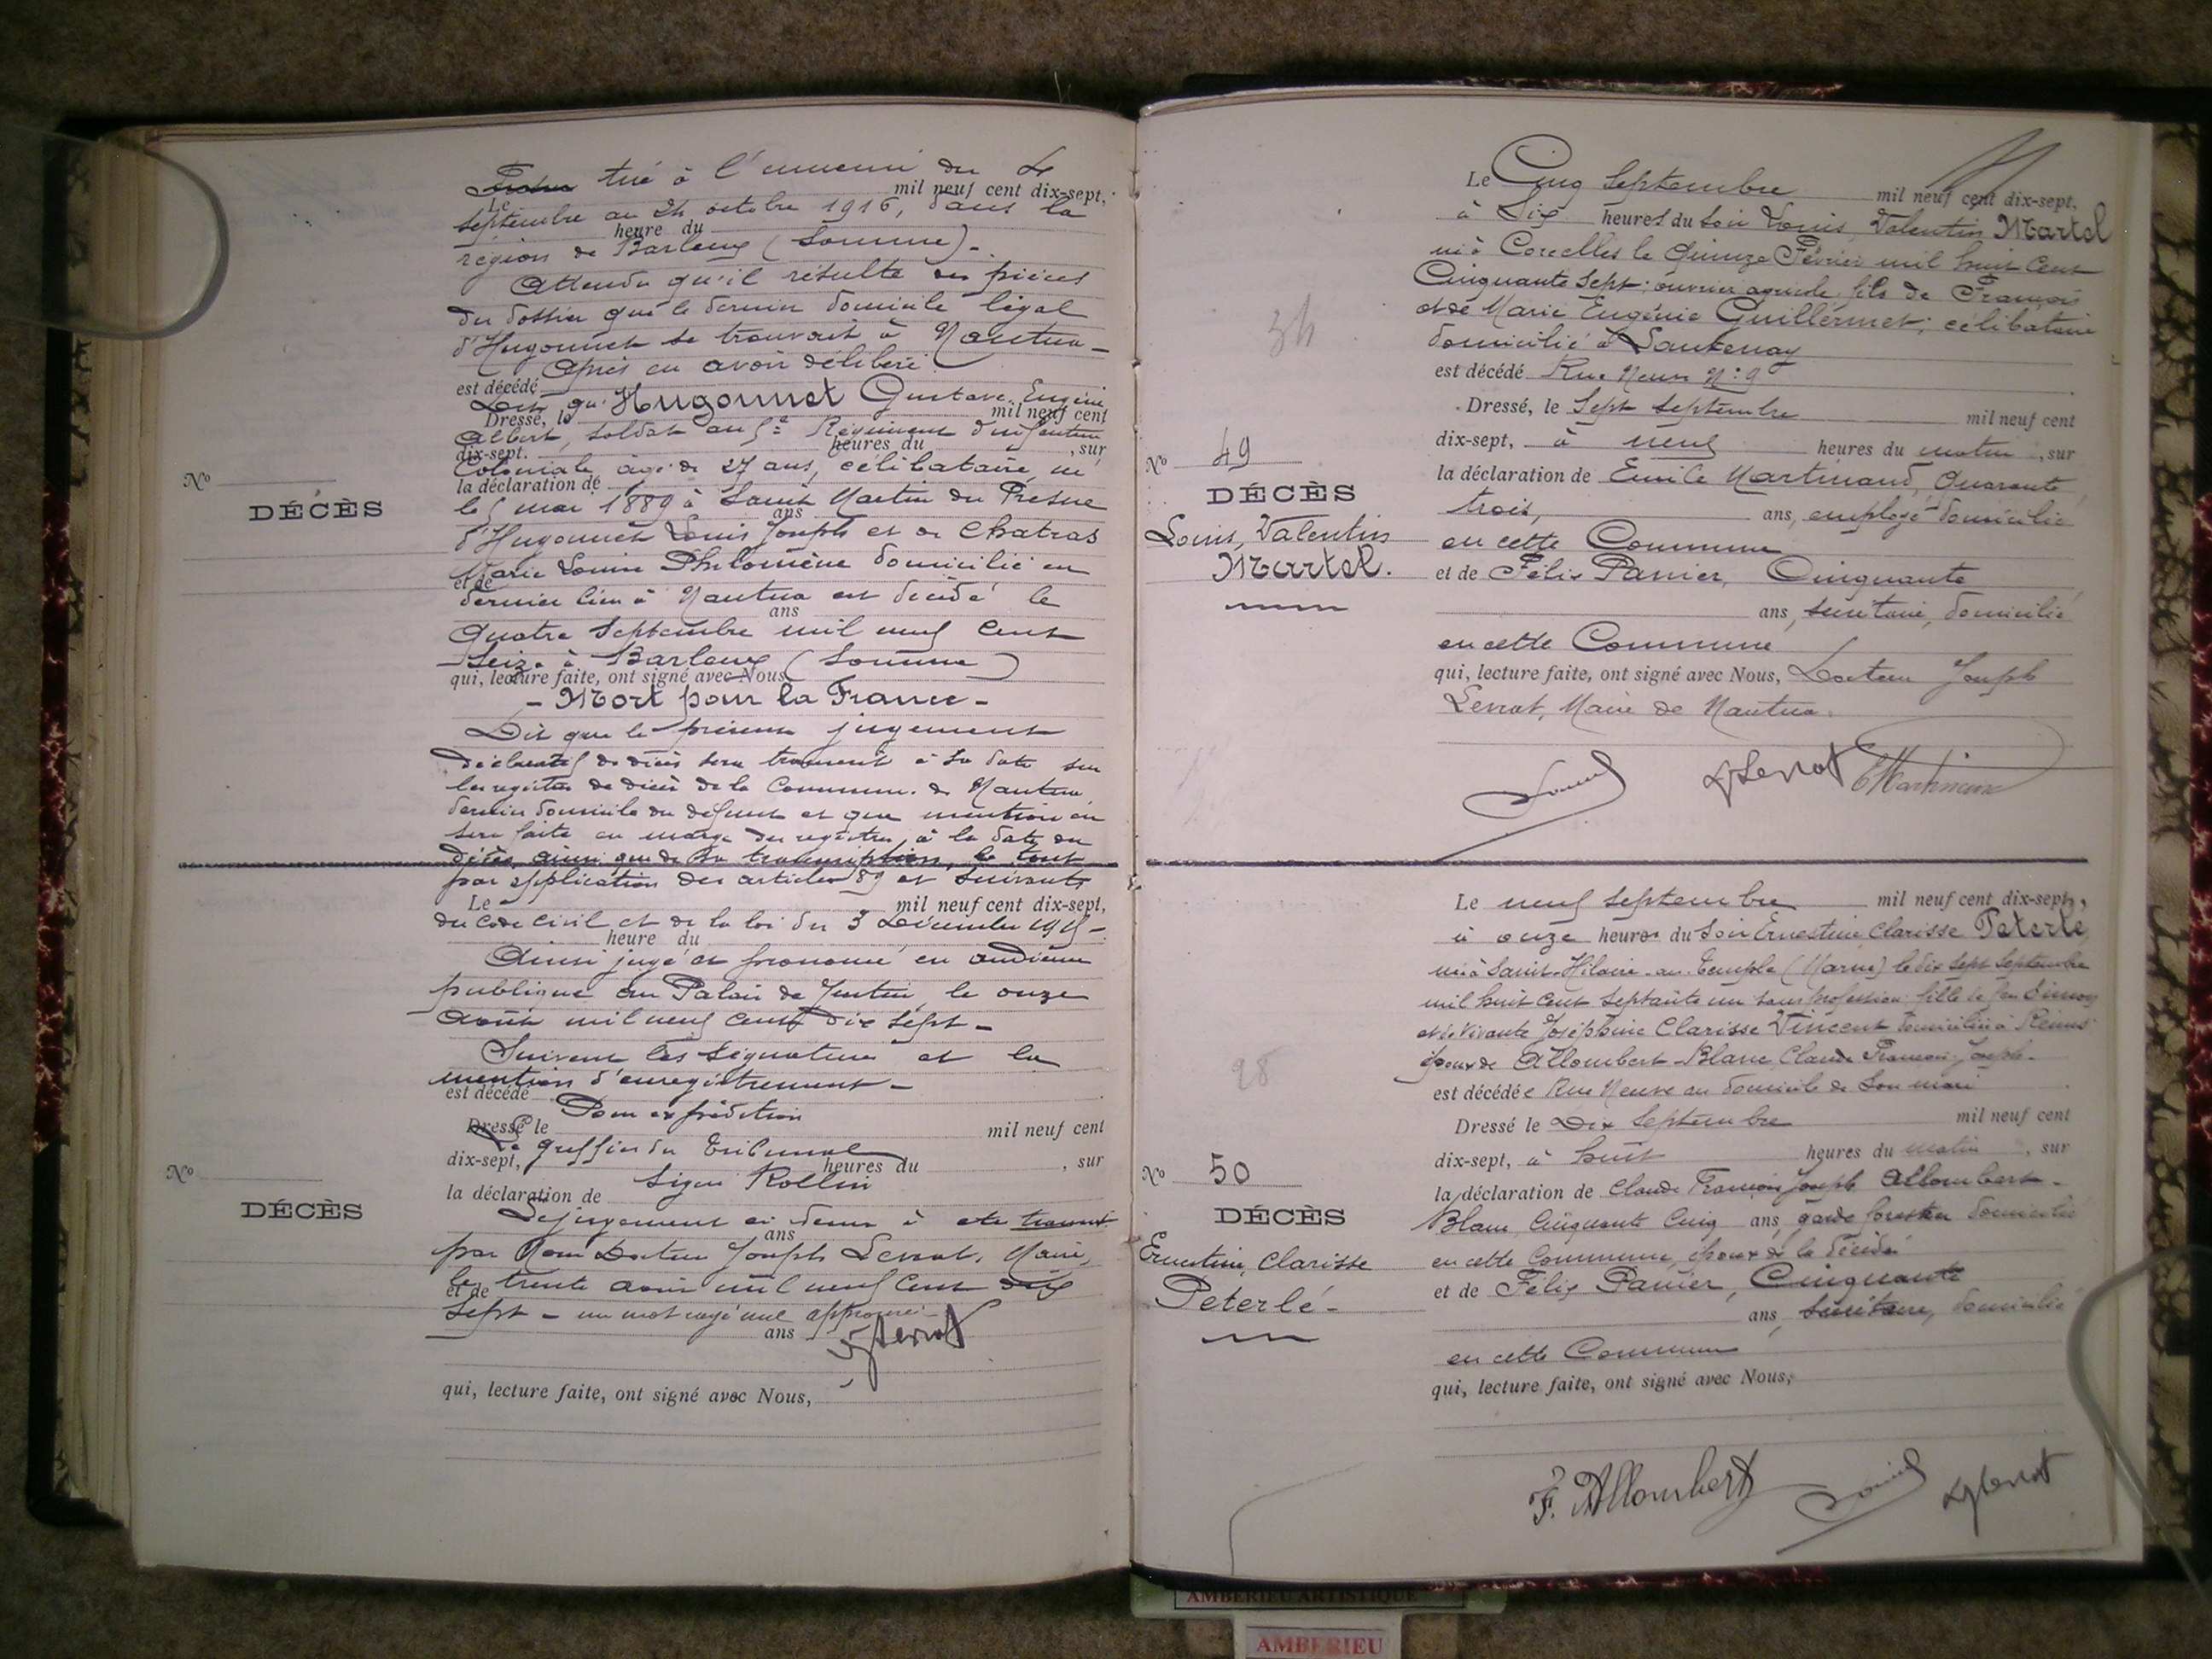 tué à l'ennemi du 4
Le mil neuf cent dix-sept,
septembre au 24 octobre 1916, dans la
heure du
région de Barleux (Somme).
Attendu qu'il résulte des pièces
du dossier que le dernier domicile légal
d'Hugonnet se trouvait à Nantua
Après en avoir délibéré
est décédé
Dit qu' Hugonnet Gustave Eugène
Dressé, le mil neuf cent
Albert, soldat au 5e Régiment d'infanterie
dix-sept. heures du , sur
Coloniale, âgé de 27 ans, célibataire, né
la déclaration de
le 5 mai 1889 à Saint Martin du Fresne
ans
d'Hugonnet Louis Joseph et de Chatras
Marie Louise Philomène domicilié en
et de
dernier lieu à Nantua est décédé le
ans
Quatre septembre mil neuf cent
seize à Barleux (Somme)
qui, lecture faite, ont signé avec Nous
- Mort pour la France -
Dit que le présent jugement
déclaratif de décès sera transcrit à sa date sur
les registres de décès de la Commune de Nantua
dernier domicile du défunt et que mention en
sera faite en marge des registres à la date du
décès, ainsi que de sa transcription, le tout
par application des articles 89 et suivants
Le mil neuf cent dix-sept,
du code civil et de la loi du 3 Décembre 1915 -
heure du
Ainsi jugé et prononcé en audience
publique au Palais de Justice le onze
Août mil neuf cent dix sept -
Suivent les signatures et la
mention d'enregistrement -
est décédé
Pour expédition
Dressé le mil neuf cent
Le greffier du Tribunal
dix-sept, heures du , sur
Signé Rollin
la déclaration de
Le jugement ci dessus a été transcrit
ans
par Nous Docteur Joseph Levrat, Maire,
le trente août mil neuf cent dix
et de
sept - un mot rayé nul approuvé -
ans
JLevrat
qui, lecture faite, ont signé avec Nous,
No
DÉCÈS
No
DÉCÈS
Le Cinq Septembre mil neuf cent dix-sept,
à Six heures du soir Louis, Valentin Martel
né à Corcelles le Quinze Février mil huit cent
Cinquante sept; ouvrier agricole fils de François
et de Marie Eugénie Guillermet; célibataire
domicilié à Lantenay
est décédé Rue Neuve N° 9
Dressé, le Sept Septembre mil neuf cent
dix-sept, à neuf heures du matin, sur
la déclaration de Emile Martinand, Quarante
trois, ans, employé domicilié
en cette Commune
et de Félix Panier, Cinquante
ans, secrétaire, domicilié
en cette Commune
qui, lecture faite, ont signé avec Nous, Docteur Joseph
Levrat, Maire de Nantua
JLevrat
34
No 49
DÉCÈS
Louis, Valentin
Martel.
Le neuf Septembre mil neuf cent dix-sept,
à onze heures du soir Ernestine Clarisse Peterlé
née à Saint-Hilaire-au-Temple (Marne) le dix sept Septembre
mil huit cent septante un sans profession fille de feu Simon
et de vivante Joséphine Clarisse Vincent domiciliée à Reims
épouse de Allombert-Blanc Claude François Joseph -
est décédée Rue Neuve au domicile de son mari
Dressé le Dix Septembre mil neuf cent
dix-sept, à huit heures du matin, sur
la déclaration de Claude François Joseph Allombert -
Blanc Cinquante Cinq ans, garde forestier domicilié
en cette Commune, époux de la décédée
et de Félix Panier, Cinquante
ans, secrétaire, domicilié
en cette Commune
qui, lecture faite, ont signé avec Nous,
F. Allombert JLevrat
98
No 50
DÉCÈS
Ernestine, Clarisse
Peterlé -
AMBERIEU ARTISTIQUE
AMBERIEU